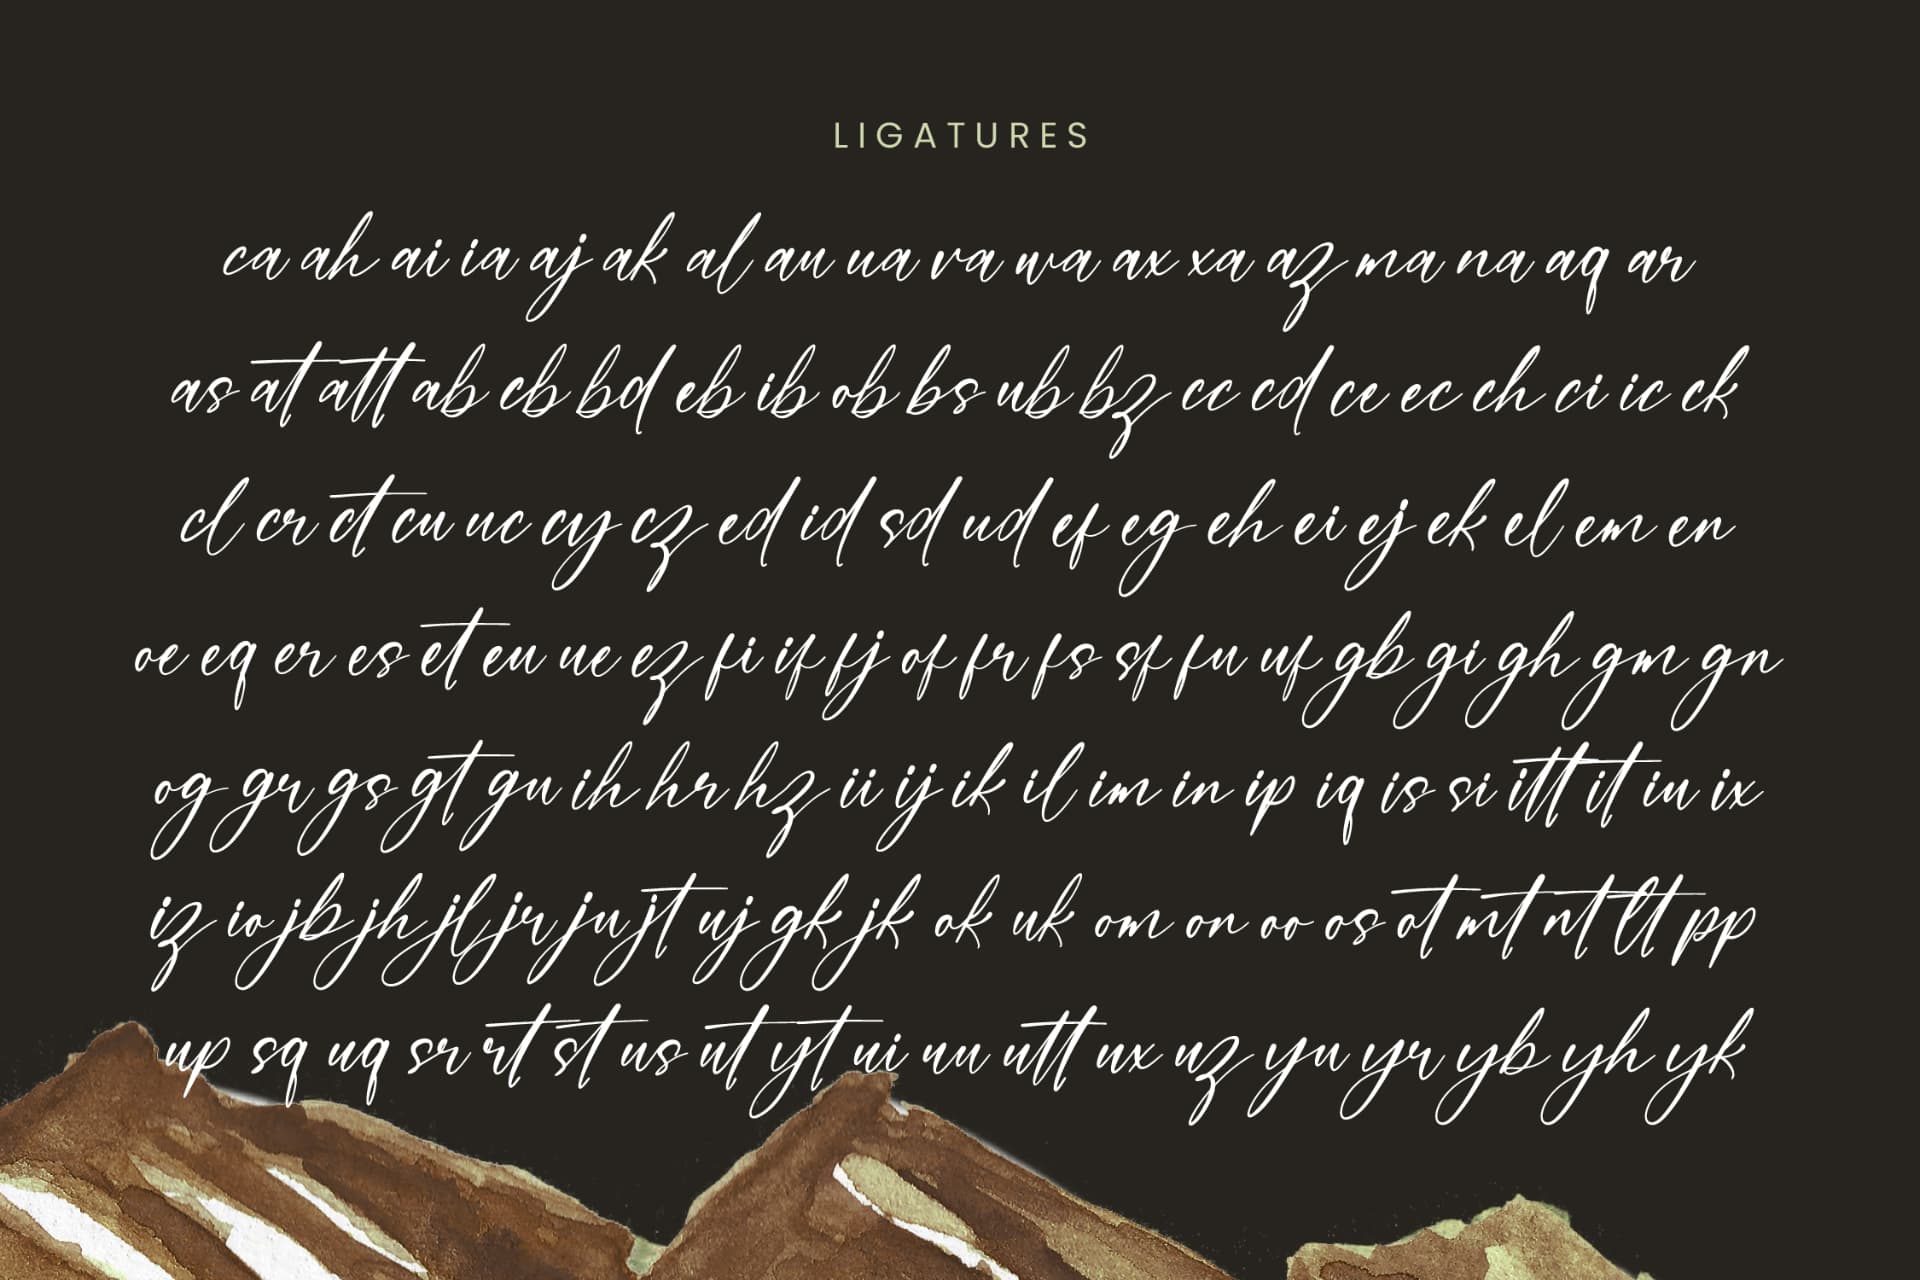 LIGATURES
ca ah ai ia aj ak al au ua va wa ax xa az ma na aq ar
as at att ab cb bd eb ib ob bs ub bz cc cd ce ec ch ci ic ck
cl cr ct cu uc cy cz ed id sd ud ef eg eh ei ej ek el em en
oe eq er es et eu ue ez fi if fj of fr fs sf fu uf gb gi gh gm gn
og gr gs gt gu ih hr hz ii ij ik il im in ip iq is si itt it iu ix
iz io jb jh jl jr ju jt uj gk jk ok uk om on oo os ot mt nt lt pp
up sq uq sr rt st us ut yt ui uu utt ux uz yu yr yb yh yk